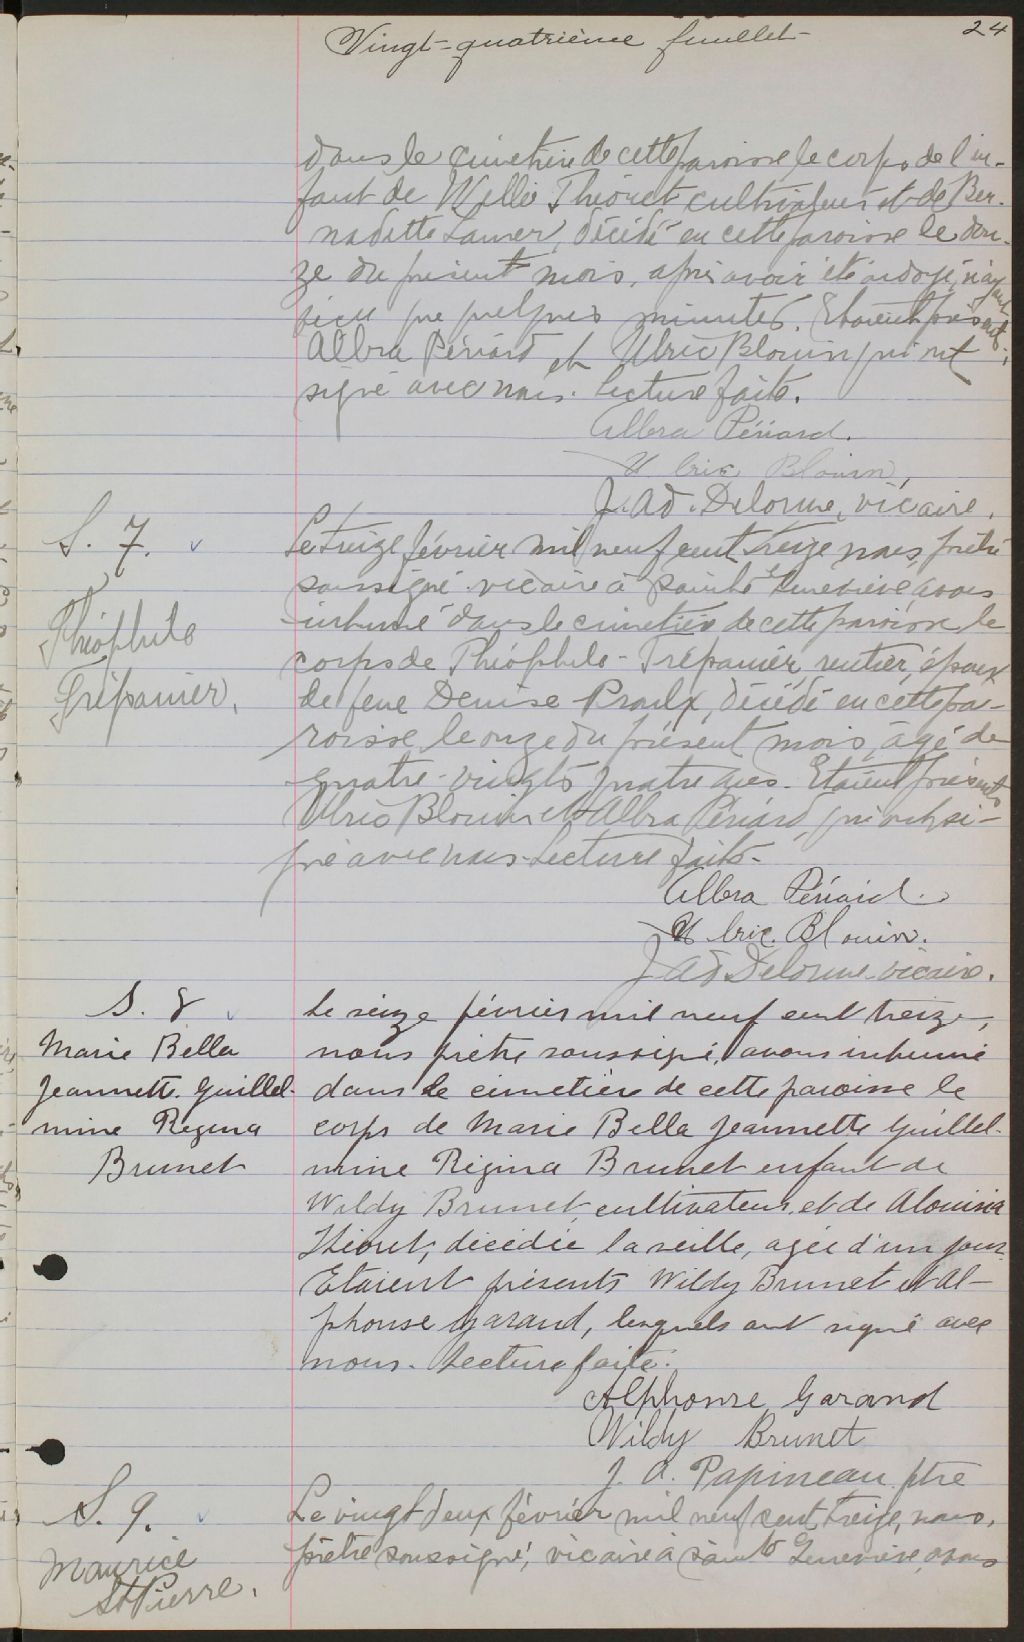 Vingt-quatrième feuillet-
24
dans le cimetière de cette paroisse le corps de l'en-
fant de Willie Théoret cultivateur et de Ber-
nadette Lauzer, décédé en cette paroisse le dou-
ze du présent mois, après avoir été ondoyé, n'ayant
vécu que quelques minutes. Etaient présents:
Albra Périard et Ulric Blouin qui ont
signé avec nous. Lecture faite.
Albra Périard.
Ulric Blouin,
J. Ad. Delorme, vicaire.
S. 7.
Théophile
Trépanier.
Le treize février mil neuf cent treize nous, prêtre
soussigné vicaire à Sainte Geneviève, avons
inhumé dans le cimetière de cette paroisse le
corps de Théophile-Trépanier, rentier, époux
de feue Denise Proulx, décédé en cette pa-
roisse le onze du présent mois, âgé de
quatre-vingts quatre ans. Etaient présents
Ulric Blouin et Albra Périard, qui ont si-
gné avec nous. Lecture faite-
Albra Périard.
Ulric. Blouin.
J Ad Delorme vicaire.
S. 8
Marie Bella
Jeannette. Guillel-
mine Regina
Brunet
Le seize février mil neuf cent treize,
nous prêtre soussigné, avons inhumé
dans le cimetière de cette paroisse le
corps de Marie Bella Jeannette Guillel-
mine Régina Brunet enfant de
Wildy Brunet, cultivateur, et de Alouisia
Théoret, décédée la veille, agée d'un jour.
Etaient présents Wildy Brunet et Al-
phonse Garand, lesquels ont signé avec
nous. Lecture faite.
Alphonse Garand
Wildy Brunet
J. A. Papineau ptre
S. 9.
Maurice
St Pierre.
Le vingt deux février mil neuf cent treize, nous,
prêtre soussigné, vicaire à Sainte Geneviève, avons